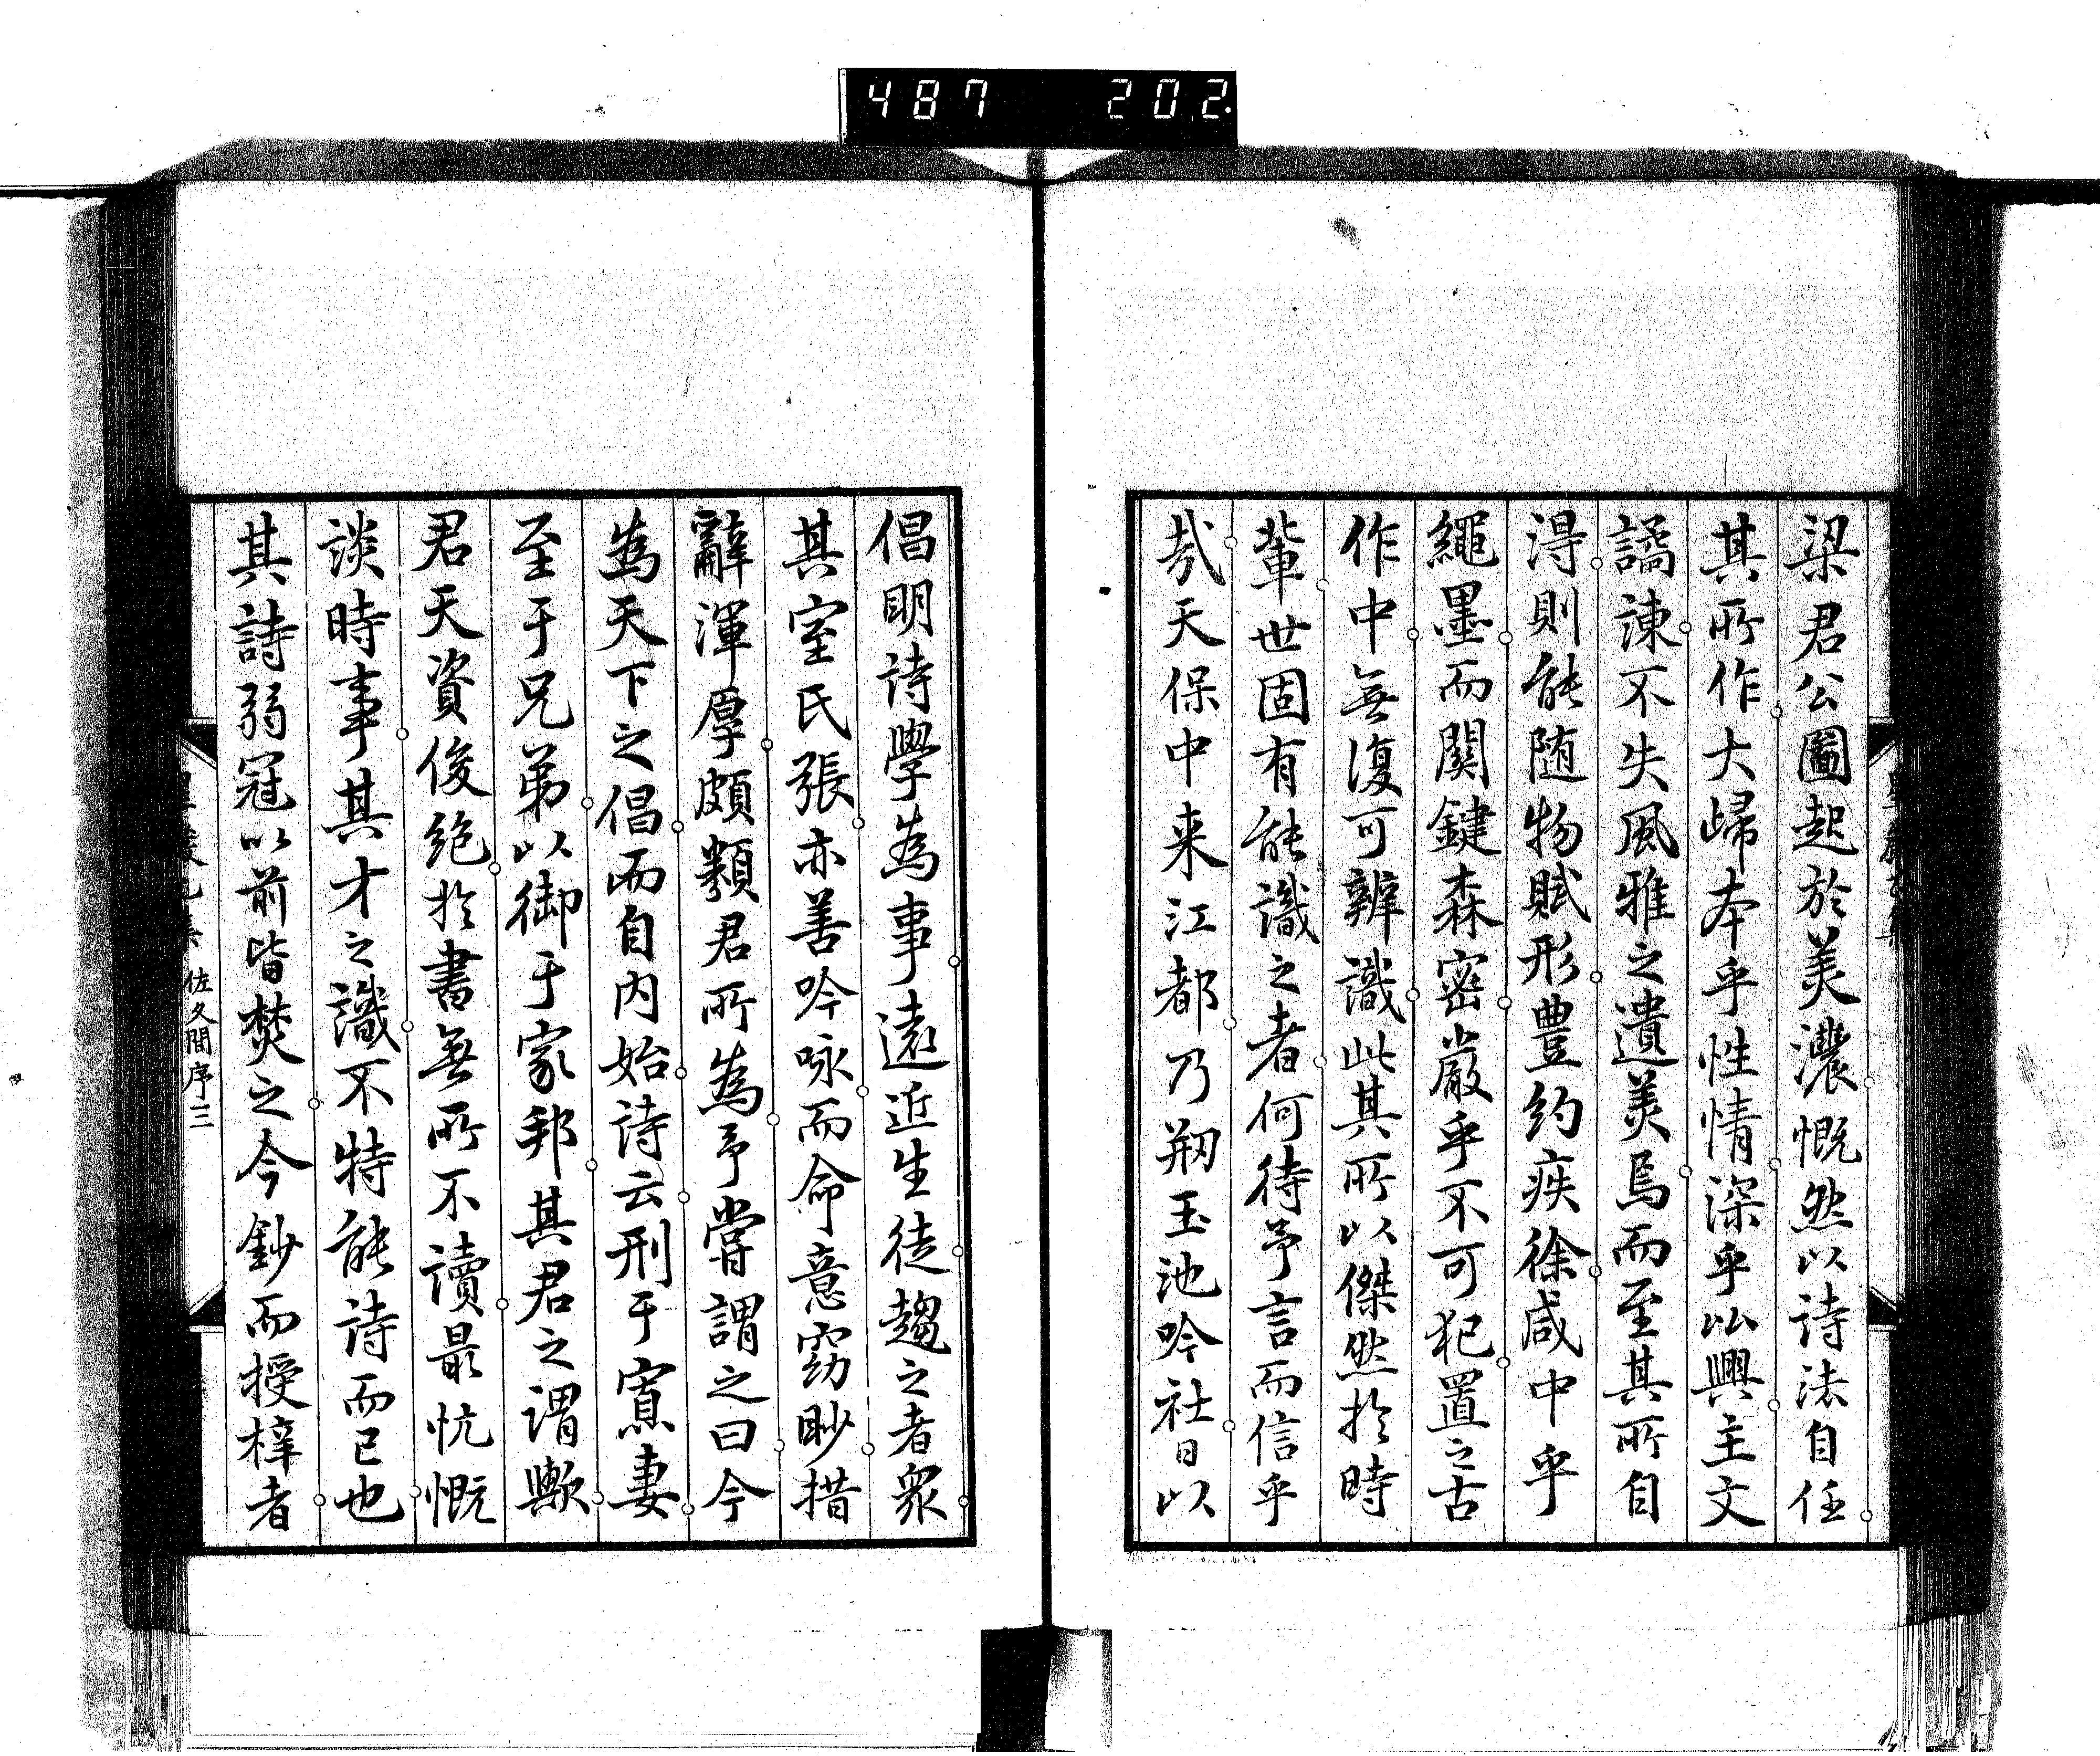 487 202
梁君公圖起於美濃慨然以詩法自任
其所作大歸本乎性情深乎比興主文
譎諫不失風雅之遺美焉而至其所自
得則能随物賦形豊約疾徐咸中乎
繩墨而関鍵森密嚴乎不可犯置之古
作中無復可辨識此其所以傑然於時
輩世固有能識之者何待予言而信乎
哉天保中来江都乃剏玉池吟社日以
倡明詩學為事遠近生徒趨之者衆
其室氏張亦善吟咏而命意窈眇措
辭渾厚頗類君所為予嘗謂之曰今
為天下之倡而自内始詩云刑于寡妻
至于兄弟以御于家邦其君之謂歟
君天資俊絶於書無所不讀最忼慨
談時事其才之識不特能詩而已也
其詩弱冠以前皆焚之今鈔而授梓者
佐久間序三